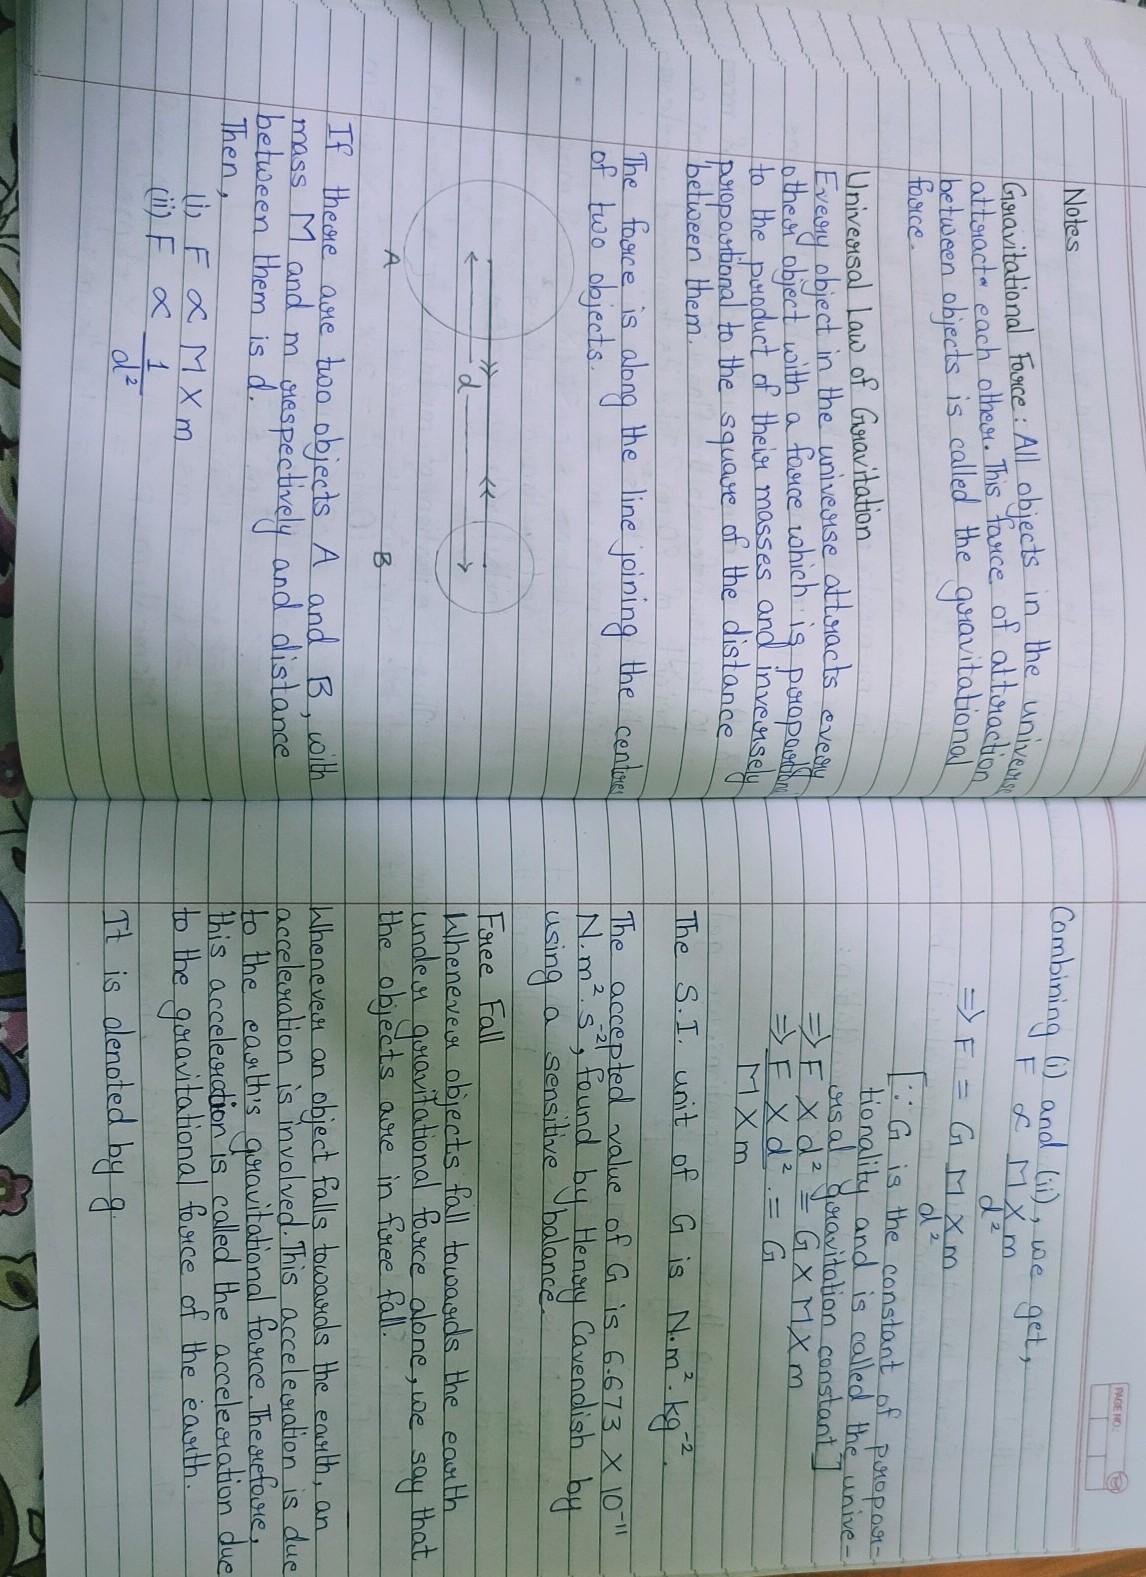 Notes
Gravitational Force: All objects in the universe
attracts each other. This force of attraction
between objects is called the gravitational
force.
Universal Law of Gravitation
Every object in the universe attracts every
other object with a force which is proportional
to the product of their masses and inversely
proportional to the square of the distance
between them.
The force is along the line joining the centres
of two objects.
d
A B
If there are two objects A and B, with
mass M and m respectively and distance
between them is d.
Then,
(i) F ∝ M × m
(ii) F ∝ 1/d²
PAGE NO.:
Combining (i) and (ii), we get,
F ∝ M × m / d²
⇒ F = G M × m / d²
[∵ G is the constant of propor-
tionality and is called the unive-
rsal gravitation constant]
⇒ F × d² = G × M × m
⇒ F × d² / M × m = G
The S.I. unit of G is N.m².kg⁻².
The accepted value of G is 6.673 × 10⁻¹¹
N.m².s⁻², found by Henry Cavendish by
using a sensitive balance.
Free Fall
Whenever objects fall towards the earth
under gravitational force alone, we say that
the objects are in free fall.
Whenever an object falls towards the earth, an
acceleration is involved. This acceleration is due
to the earth's gravitational force. Therefore,
this acceleration is called the acceleration due
to the gravitational force of the earth.
It is denoted by g.